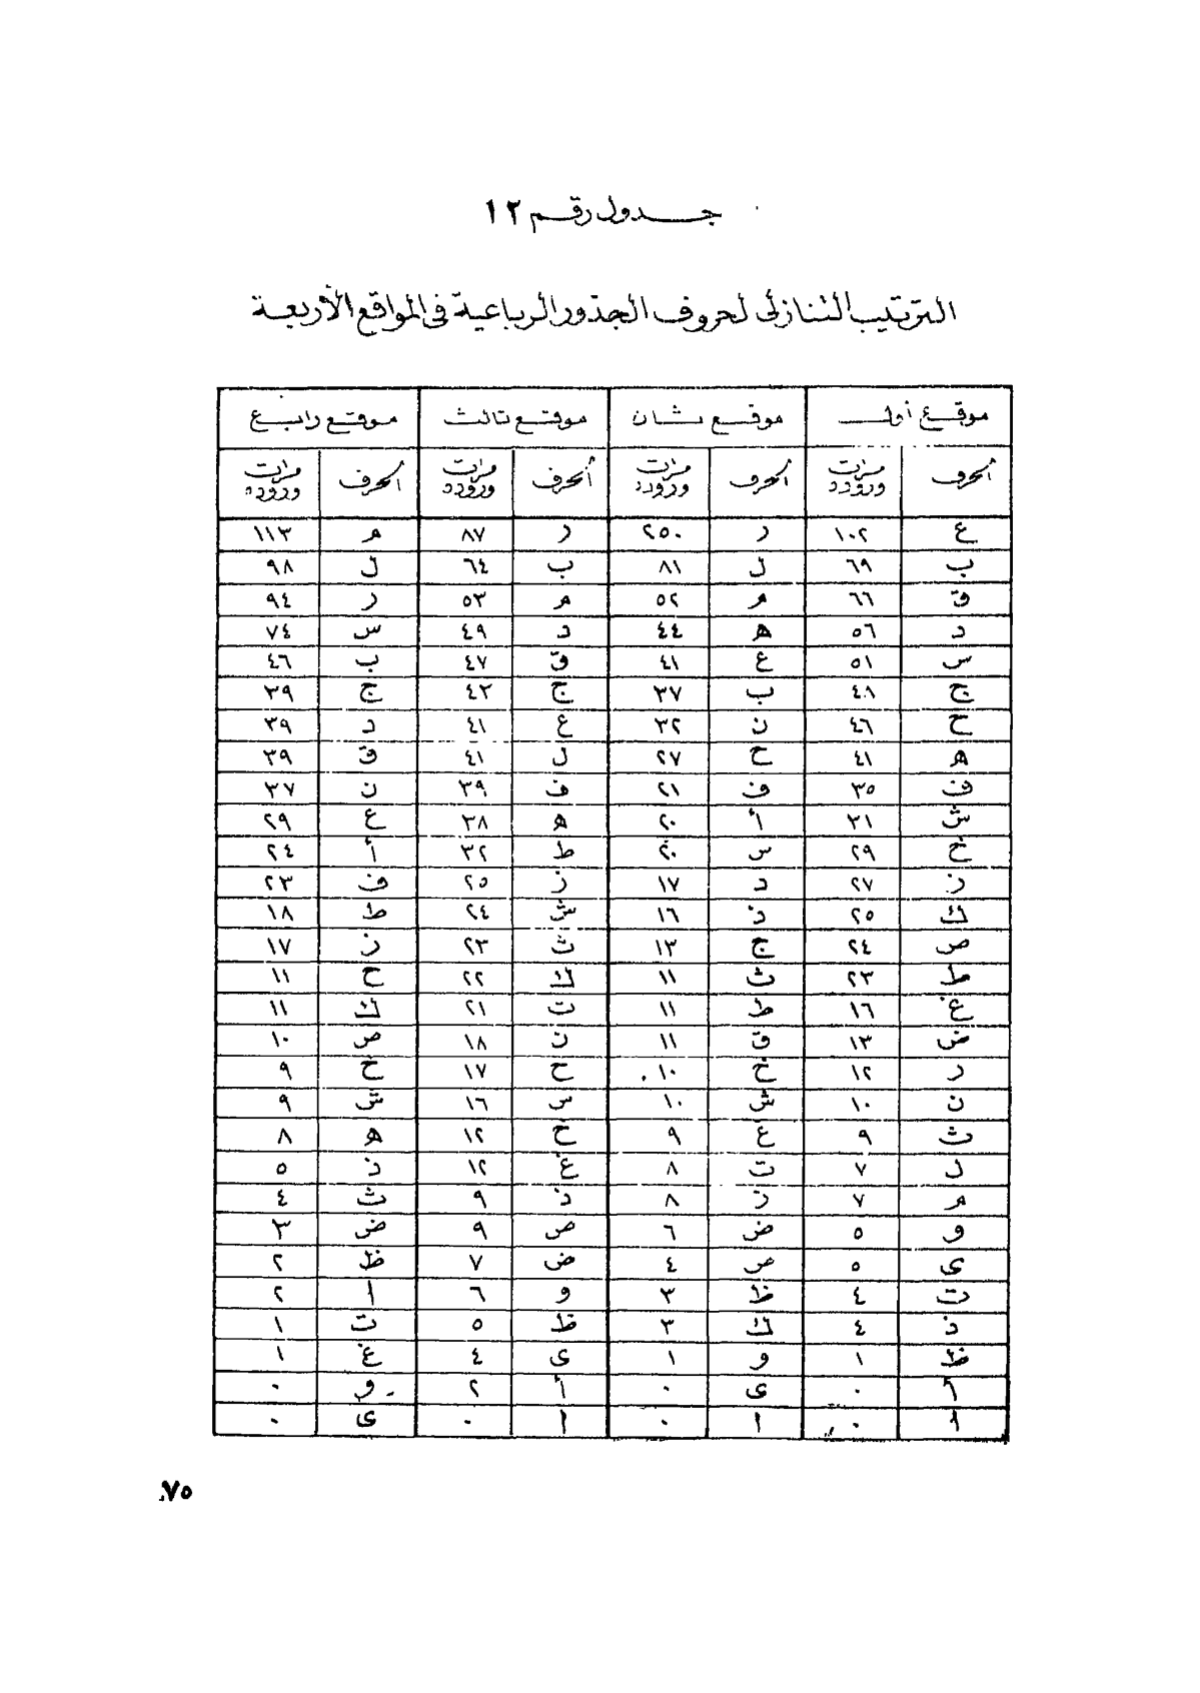 جدول رقم ١٢
الترتيب التنازلى لحروف الجذور الرباعية فى المواقع الأربعة
موقع أول موقع ثان موقع ثالث موقع رابع
الحرف مرات وروده الحرف مرات وروده الحرف مرات وروده الحرف مرات وروده
ع ١٠٢ ر ٢٥٠ ر ٨٧ م ١١٣
ب ٦٩ ل ٨١ ب ٦٤ ل ٩٨
ق ٦٦ م ٥٢ م ٥٣ ر ٩٤
د ٥٦ ه ٤٤ د ٤٩ س ٧٤
س ٥١ ع ٤١ ق ٤٧ ب ٤٦
ج ٤٨ ب ٣٧ ج ٤٢ ج ٣٩
ح ٤٦ ن ٣٢ ع ٤١ د ٣٩
ه ٤١ ح ٢٧ ل ٤١ ق ٣٩
ف ٣٥ ف ٢١ ف ٣٩ ن ٣٧
ش ٣١ أ ٢٠ ه ٣٨ ع ٢٩
خ ٢٩ س ٢٠ ط ٣٢ أ ٢٤
ز ٢٧ د ١٧ ز ٢٥ ف ٢٣
ك ٢٥ ذ ١٦ ش ٢٤ ط ١٨
ص ٢٤ ج ١٣ ث ٢٣ ز ١٧
ط ٢٣ ث ١١ ك ٢٢ ح ١١
غ ١٦ ط ١١ ت ٢١ ك ١١
ض ١٣ ق ١١ ن ١٨ ص ١٠
ر ١٢ خ ١٠ ح ١٧ خ ٩
ن ١٠ ش ١٠ س ١٦ ش ٩
ث ٩ غ ٩ خ ١٢ ه ٨
ل ٧ ت ٨ غ ١٢ ذ ٥
م ٧ ز ٨ ذ ٩ ث ٤
و ٥ ض ٦ ص ٩ ض ٣
ى ٥ ص ٤ ض ٧ ظ ٢
ت ٤ ظ ٣ و ٦ ا ٢
ذ ٤ ك ٣ ظ ٥ ت ١
ظ ١ و ١ ى ٤ غ ١
أ ٠ ى ٠ أ ٢ و ٠
ا ٠ ا ٠ ا ٠ ى ٠
٧٥